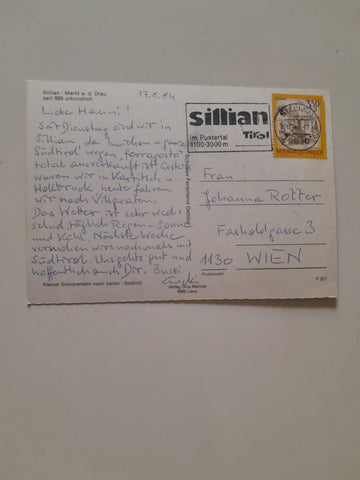 Sillian - Markt a. d. Drau
seit 995 urkundlich
17.8.84
Liebe Hanni!
Seit Dienstag sind wir in
Sillian, da Innichen u. ganz
Südtirol wegen „ferragosto"
total ausverkauft ist. Gestern
waren wir in Kartitsch u.
Hollbruck, heute fahren
wir nach Villgraten.
Das Wetter ist sehr wech-
selnd, täglich Regen u. Sonne
und kühl. Nächste Woche
versuchen wir nochmals mit
Südtirol. Uns gehts gut und
hoffentlich auch Dir. Bussi
Kleiner Grenzverkehr nach Italien - Südtirol
Verlag Dina Mariner
9900 Lienz
Schönes Ferienland Osttirol
sillian
im Pustertal Tirol
1100-3000m
350
REPUBLIK ÖSTERREICH
Frau
Johanna Rotter
Fasholdgasse 3
1130 WIEN
Postleitzahl
F 221